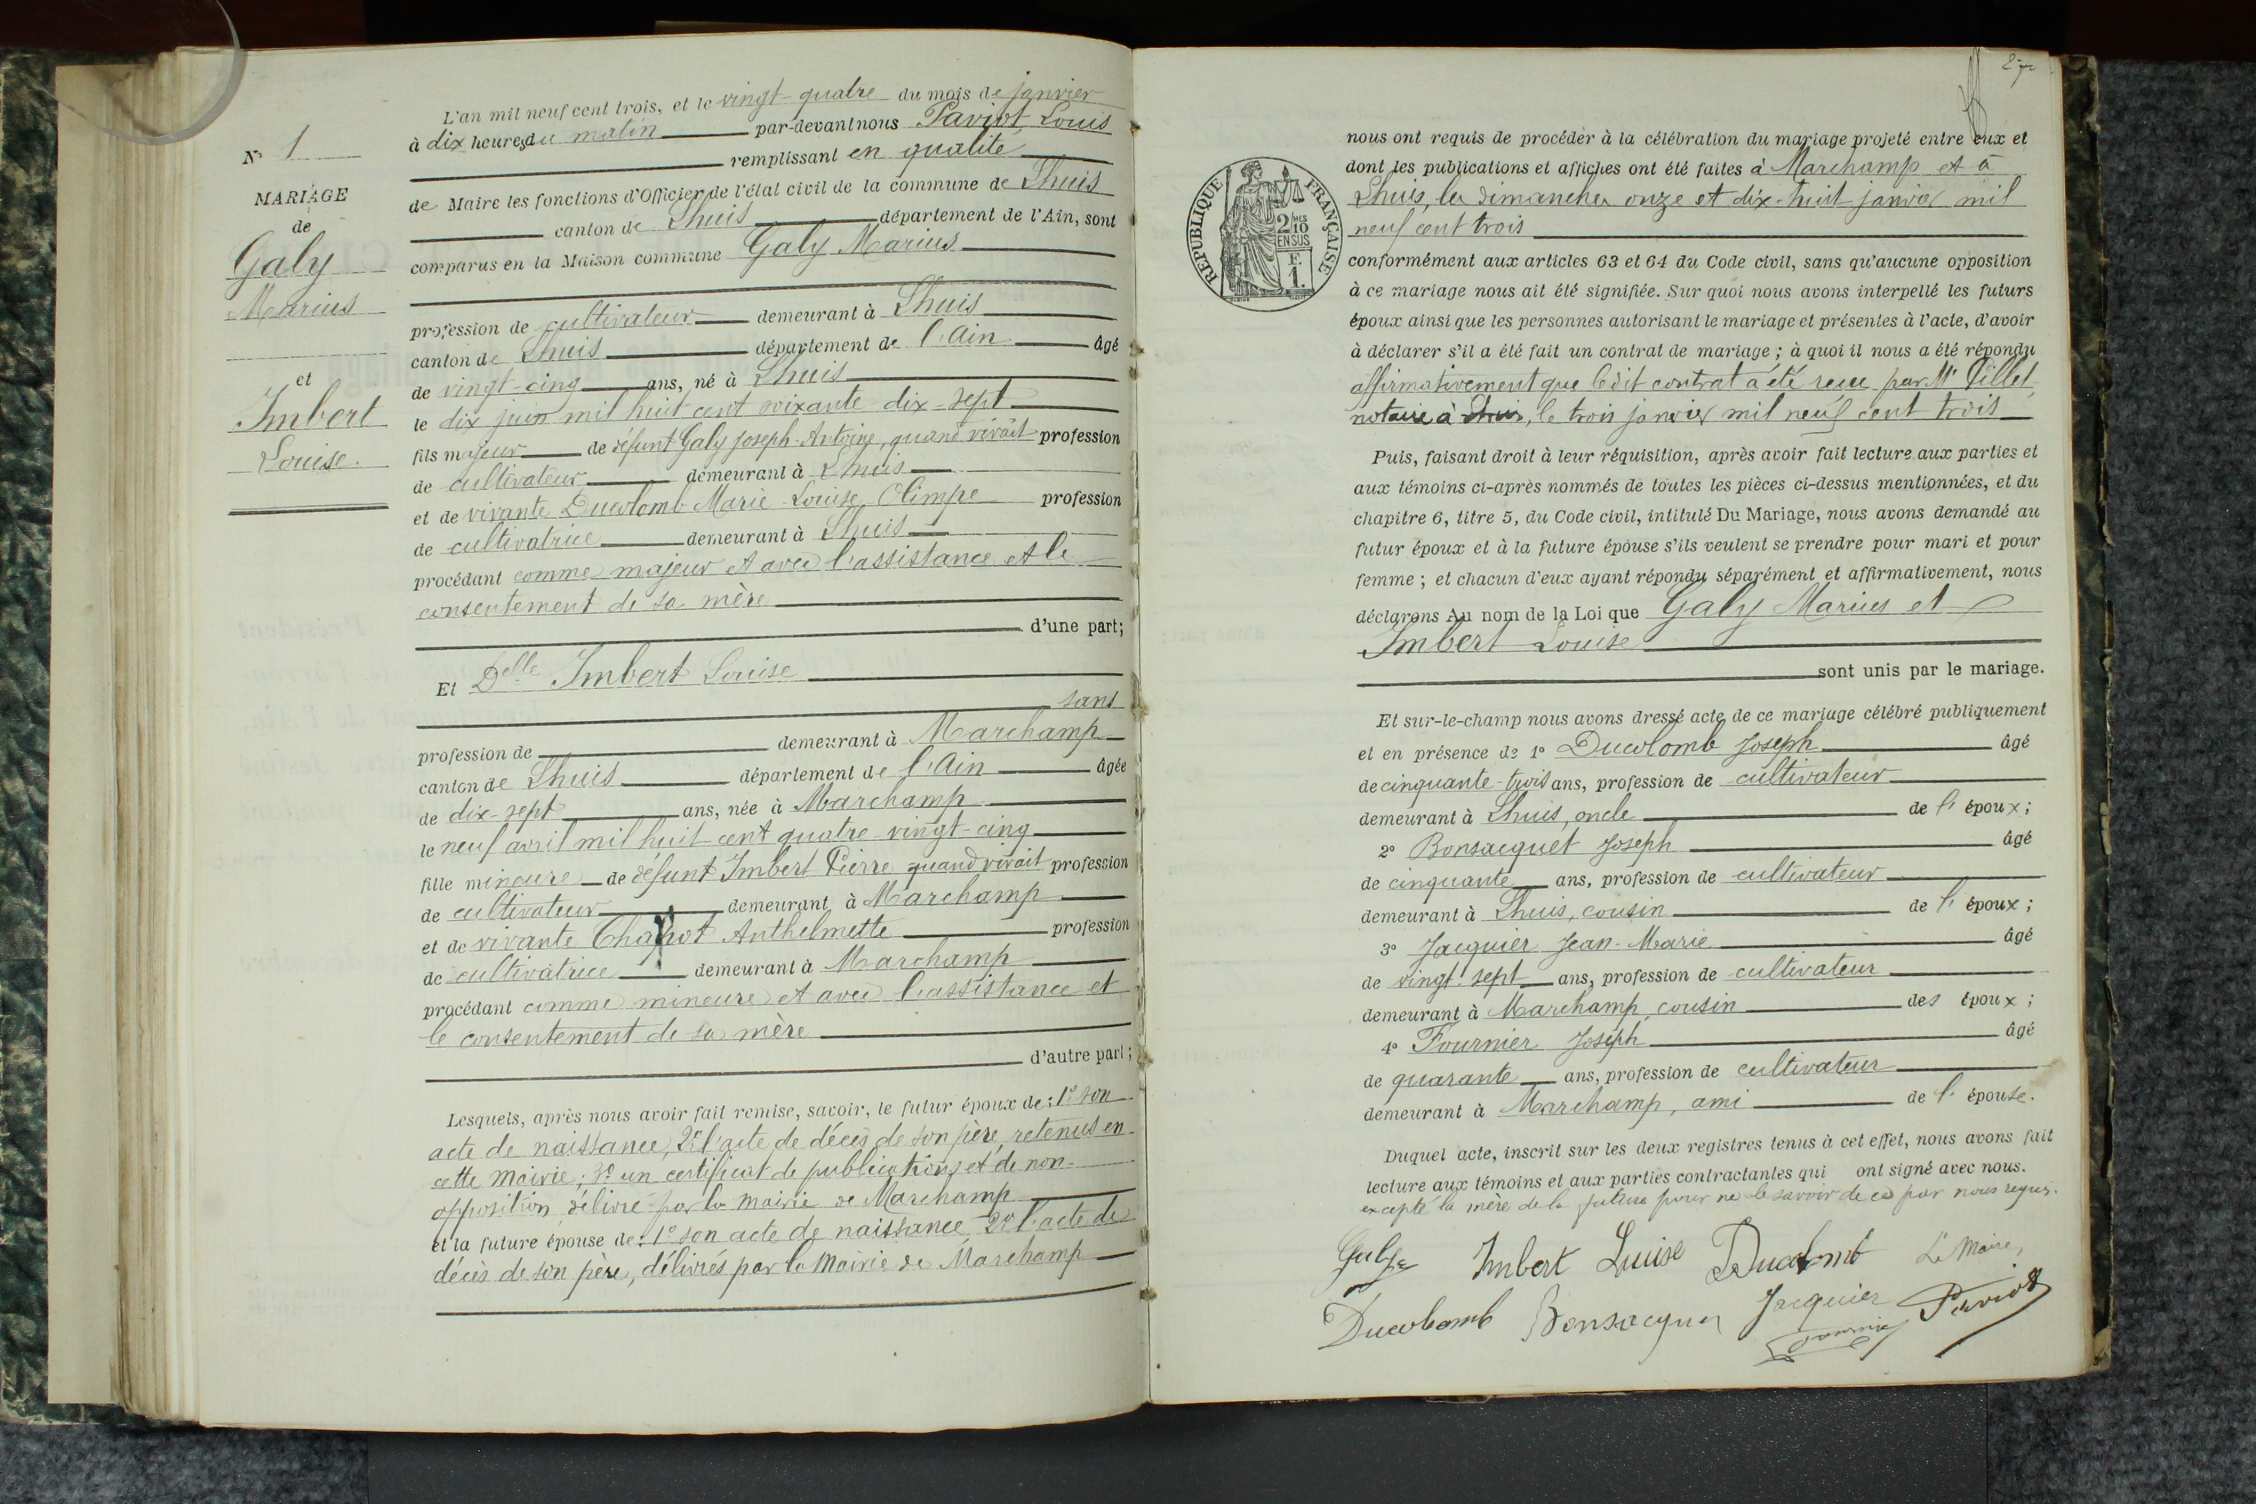 N° 1
MARIAGE
de
Galy
Marius
et
Imbert
Louise.
L'an mil neuf cent trois, et le vingt-quatre du mois de janvier
à dix heures du matin par-devant nous Paviot Louis
remplissant en qualité
de Maire les fonctions d'Officier de l'état civil de la commune de Lhuis
canton de Lhuis département de l'Ain, sont
comparus en la Maison commune Galy Marius
profession de cultivateur demeurant à Lhuis
canton de Lhuis département de l'Ain âgé
de vingt-cinq ans, né à Lhuis
le dix juin mil huit cent soixante-dix-sept
fils majeur de défunt Galy Joseph-Antoine, quand vivait profession
de cultivateur demeurant à Lhuis
et de vivante Ducolomb Marie-Louise Olimpe profession
de cultivatrice demeurant à Lhuis
procédant comme majeur et avec l'assistance et le
consentement de sa mère
d'une part;
Et Delle Imbert Louise
sans
profession de demeurant à Marchamp
canton de Lhuis département de l'Ain âgée
de dix-sept ans, née à Marchamp
le neuf avril mil huit cent quatre-vingt-cinq
fille mineure de défunt Imbert Pierre quand vivait profession
de cultivateur demeurant à Marchamp
et de vivante Anthelmette profession
de cultivatrice demeurant à Marchamp
procédant comme mineure et avec l'assistance et
le consentement de sa mère
d'autre part;
Lesquels, après nous avoir fait remise, savoir, le futur époux de: 1° son
acte de naissance, 2° l'acte de décès de son père, retenus en
cette mairie; 3° un certificat de publications et de non-
opposition délivré par la mairie de Marchamp
et la future épouse de: 1° son acte de naissance 2° l'acte de
décès de son père, délivrés par la Mairie de Marchamp
RÉPUBLIQUE FRANÇAISE
2/10 MES
EN SUS
F.
1.
nous ont requis de procéder à la célébration du mariage projeté entre eux et
dont les publications et affiches ont été faites à Marchamp et à
Lhuis, les dimanches onze et dix-huit janvier mil
neuf cent trois
conformément aux articles 63 et 64 du Code civil, sans qu'aucune opposition
à ce mariage nous ait été signifiée. Sur quoi nous avons interpellé les futurs
époux ainsi que les personnes autorisant le mariage et présentes à l'acte, d'avoir
à déclarer s'il a été fait un contrat de mariage; à quoi il nous a été répondu
affirmativement que ledit contrat a été reçu par Me Pillet,
notaire à Lhuis, le trois janvier mil neuf cent trois
Puis, faisant droit à leur réquisition, après avoir fait lecture aux parties et
aux témoins ci-après nommés de toutes les pièces ci-dessus mentionnées, et du
chapitre 6, titre 5, du Code civil, intitulé Du Mariage, nous avons demandé au
futur époux et à la future épouse s'ils veulent se prendre pour mari et pour
femme; et chacun d'eux ayant répondu séparément et affirmativement, nous
déclarons Au nom de la Loi que Galy Marius et
Imbert Louise
sont unis par le mariage.
Et sur-le-champ nous avons dressé acte de ce mariage célébré publiquement
et en présence de 1° Ducolomb Joseph âgé
de cinquante-trois ans, profession de cultivateur
demeurant à Lhuis, oncle de l'époux;
2° Bonsacquet Joseph âgé
de cinquante ans, profession de cultivateur
demeurant à Lhuis, cousin de l'époux;
3° Jacquier Jean-Marie âgé
de vingt-sept ans, profession de cultivateur
demeurant à Marchamp, cousin des époux;
4° Fournier Joseph âgé
de quarante ans, profession de cultivateur
demeurant à Marchamp, ami de l'épouse.
Duquel acte, inscrit sur les deux registres tenus à cet effet, nous avons fait
lecture aux témoins et aux parties contractantes qui ont signé avec nous.
excepté la mère de la future pour ne le savoir de ce par nous requis.
Galy Imbert Louise Ducolomb Le Maire,
Ducolomb Bonsacquet Jacquier Paviot
Fournier